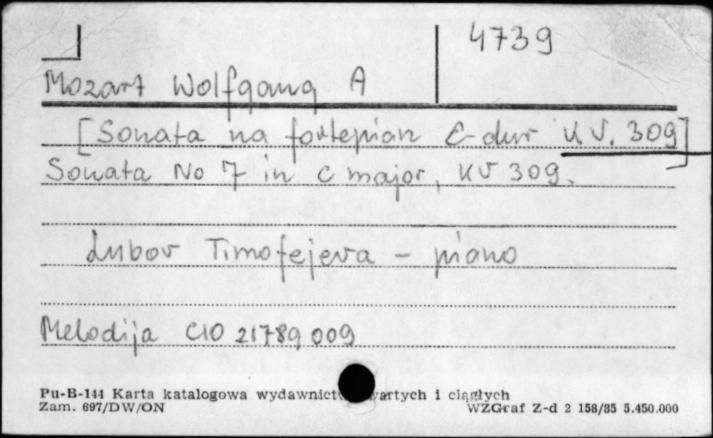 4739
Mozart Wolfgang A
[Sonata na fortepian C-dur KV. 309]
Sonata No 7 in C major, KV 309.
Lubov Timofejeva - piano
Melodija C10 21789 009
Pu-B-144 Karta katalogowa wydawnictw i ciągłych
Zam. 697/DW/ON WZGraf Z-d 2 158/85 5.450.000